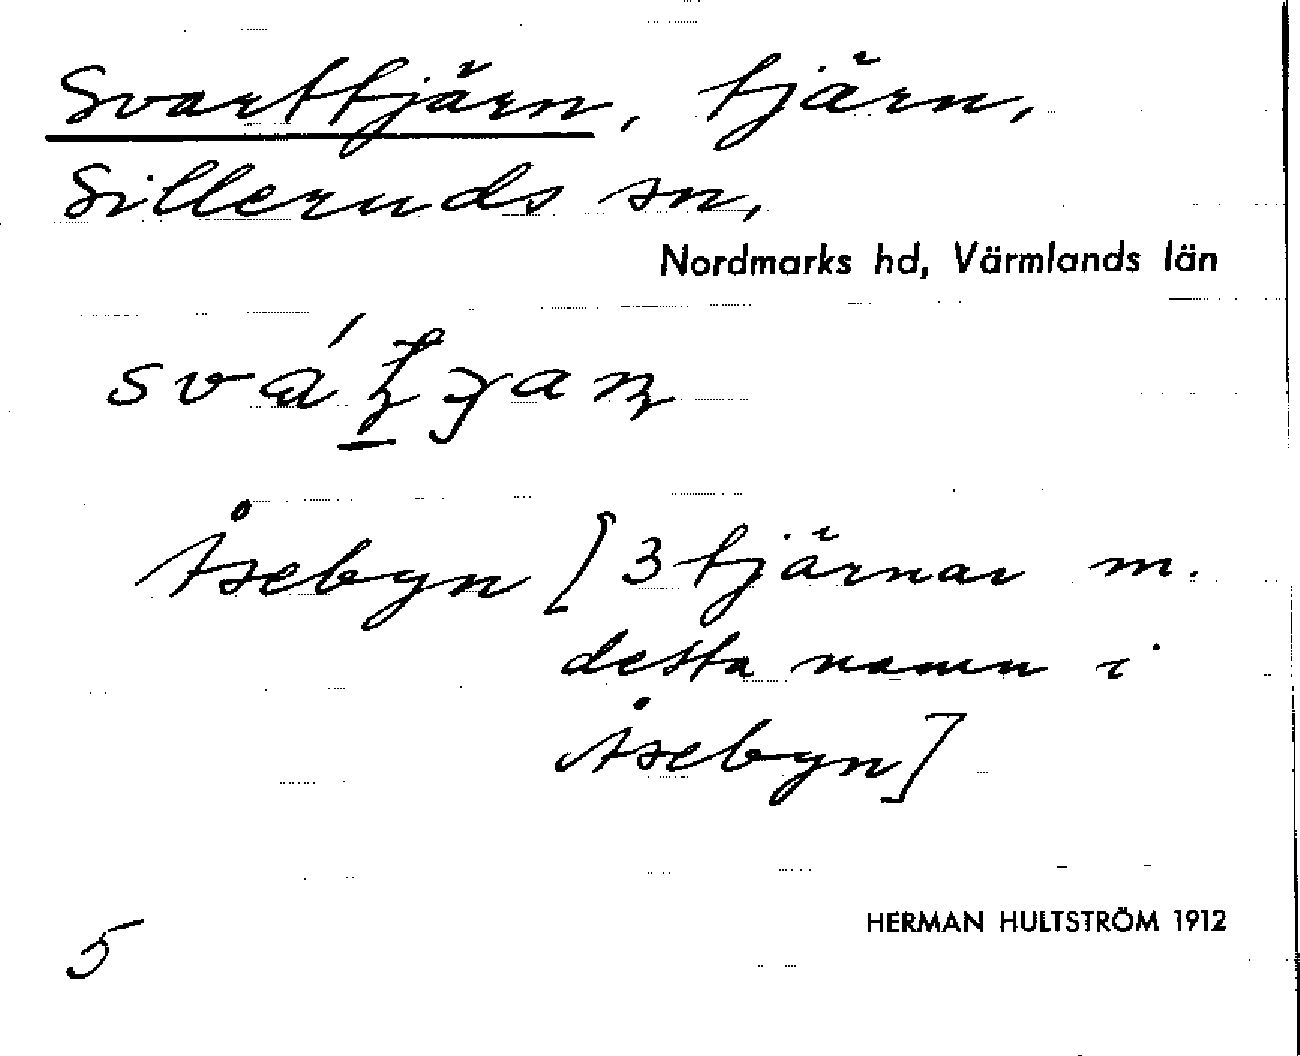 Svarttjärn, tjärn,
Silleruds sn,
Nordmarks hd, Värmlands län
Åsebyn [3 tjärnar m.
detta namn i
Åsebyn]
HERMAN HULTSTRÖM 1912
5